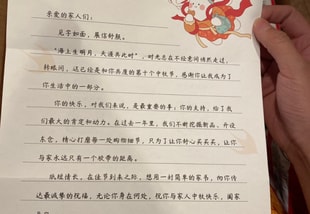 亲爱的家人们：
见字如面，展信舒颜。
“海上生明月，天涯共此时”，时光总在不经意间祯然走过，
转眼间，这已经是和你共度的第十个中秋节，感谢你让我成为了
你生活中的一部分。
你的快乐，对我们来说，是最重要的事；你的支持，给了我
们最大的肯定和动力。在过去一年里，我们不断挖掘新品，升级
东仓，精心打磨每一处购物细节，只为了让你舒心买买买，让你
与家永远只有一个胶带的距离。
纸短情长，在佳节到来之际，想用一封简单的家书，向你传
达最诚挚的祝福，无论你身在何处，祝你与家人中秋快乐，阖家